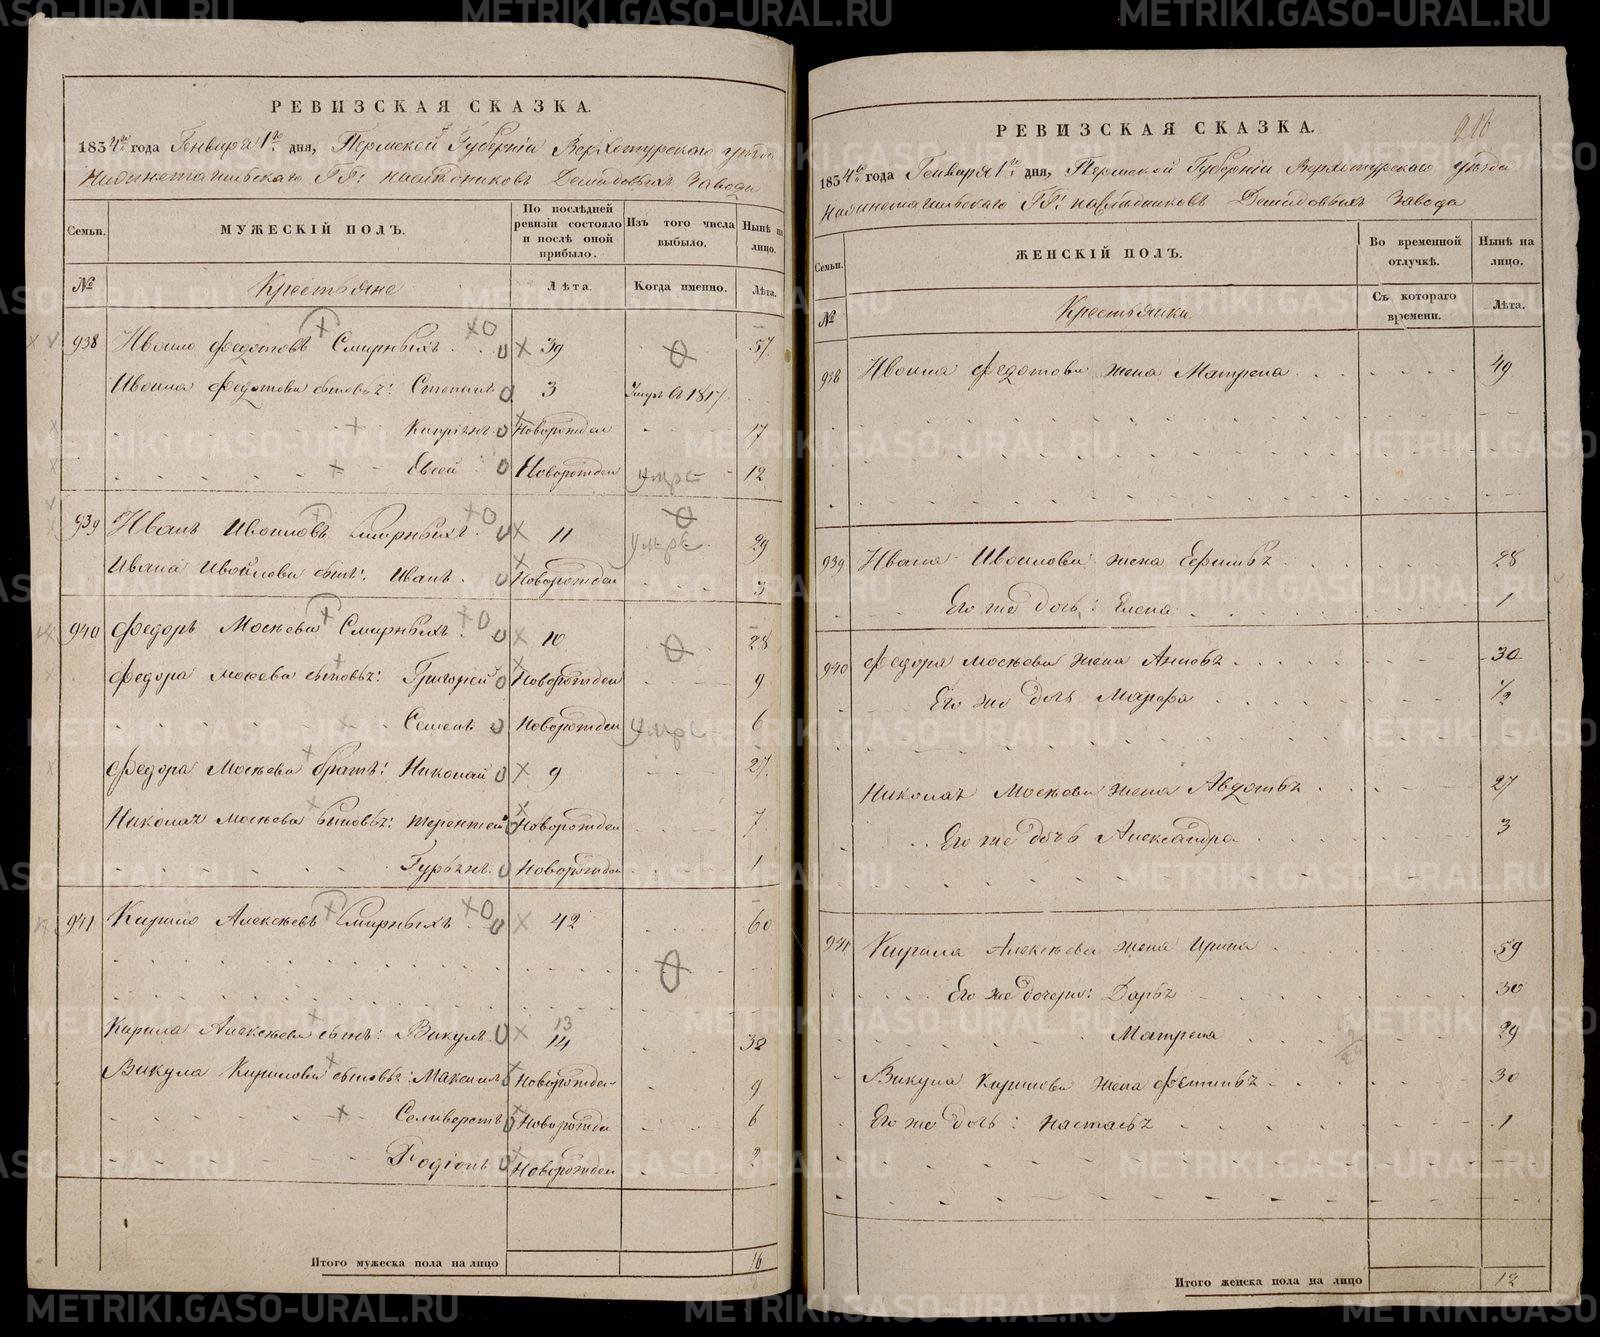 РЕВИЗСКАЯ СКАЗКА.
1834го года Генваря 1го дня, Пермской Губерніи Верхотурскаго уѣзда
Нижнетагильскаго ГГ: наслѣдниковъ Демидовыхъ Завода
Семьи.
МУЖЕСКІЙ ПОЛЪ.
По послѣдней ревизіи состояло и послѣ оной прибыло.
Изъ того числа выбыло.
Нынѣ на лицо.
№
Крестьяне
Лѣта.
Когда именно.
Лѣта.
938 Ивоило Федотовъ Смирныхъ 39 57
Ивоила Федотова сыновья: Степанъ 3 Умеръ въ 1817
Кипріянъ Новорожден 17
Евсей Новорожден умре 12
939 Иванъ Ивоиловъ Смирныхъ 11 умре 29
Ивана Ивойлова сынъ: Иванъ Новорожден 3
940 Федоръ Мосѣевъ Смирныхъ 10 28
Федора Мосеева сыновья: Григорей Новорожден 9
Семенъ Новорожден умре 6
Федора Мосѣева братъ: Николай 9 27
Николая Мосѣева сыновья: Терентей Новорожден 7
Гурьянъ Новорожден 1
941 Кирило Алексѣевъ Смирныхъ 42 60
Кирила Алексѣева сынъ: Викулъ 13 14 32
Викула Кирилова сыновья: Максимъ Новорожден 9
Селиверстъ Новорожден 6
Родіонъ Новорожден 2
Итого мужеска пола на лицо 16
РЕВИЗСКАЯ СКАЗКА.
1834го года Генваря 1го дня, Пермской Губерніи Верхотурскаго уѣзда
Нижнетагильскаго ГГ: наслѣдниковъ Демидовыхъ Завода
Семьи.
ЖЕНСКІЙ ПОЛЪ.
Во временной отлучкѣ.
Нынѣ на лицо.
№
Крестьянки
Съ котораго времени.
Лѣта.
938 Ивоила Федотова жена Матрена 49
939 Ивана Ивоилова жена Ефимья 28
Его же дочь: Елена 1
940 Федора Мосѣева жена Анисья 30
Его же дочь Марфа 1/2
Николая Мосѣева жена Авдотья 27
Его же дочь Александра 3
941 Кирила Алексѣева жена Ирина 59
Его же дочери: Дарья 30
Матрена 29
Викула Кирилова жена Фетинья 30
Его же дочь: Настасья 1
Итого женска пола на лицо 12
METRIKI.GASO-URAL.RU